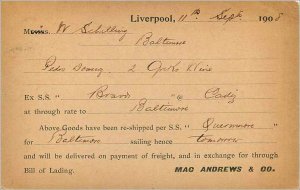 Liverpool, 11th Sept 1908
Messrs. W Schilling
Baltimore
Pedro Domecq 2 Wine
Ex S.S. " Bravo " @ Cadiz
at through rate to Baltimore
Above Goods have been re-shipped per S.S. " Quernmore "
for Baltimore sailing hence tomorrow
and will be delivered on payment of freight, and in exchange for through
Bill of Lading. MAC ANDREWS & CO.